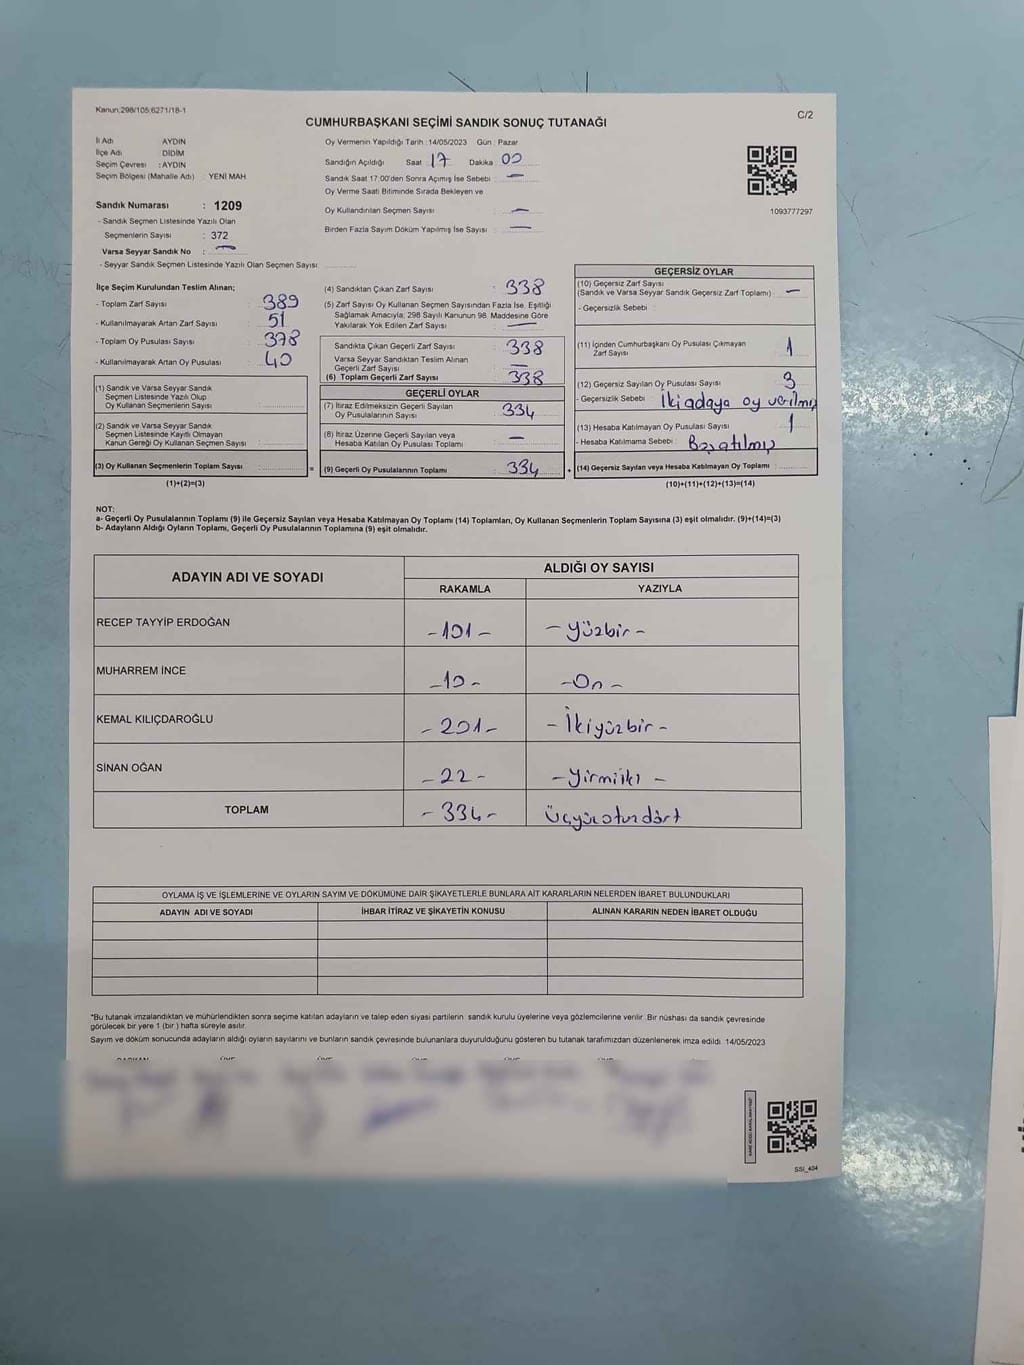 Kanun:298/105;6271/18-1
C/2
CUMHURBAŞKANI SEÇİMİ SANDIK SONUÇ TUTANAĞI
İl Adı AYDIN
İlçe Adı DİDİM
Seçim Çevresi : AYDIN
Seçim Bölgesi (Mahalle Adı) : YENİ MAH
Sandık Numarası : 1209
- Sandık Seçmen Listesinde Yazılı Olan
Seçmenlerin Sayısı : 372
Varsa Seyyar Sandık No : —
- Seyyar Sandık Seçmen Listesinde Yazılı Olan Seçmen Sayısı:
Oy Vermenin Yapıldığı Tarih :14/05/2023 Gün : Pazar
Sandığın Açıldığı Saat 17 Dakika 00
Sandık Saat 17:00'den Sonra Açımış İse Sebebi : —
Oy Verme Saati Bitiminde Sırada Bekleyen ve
Oy Kullandırılan Seçmen Sayısı : —
Birden Fazla Sayım Döküm Yapılmış İse Sayısı : —
1093777297
İlçe Seçim Kurulundan Teslim Alınan;
- Toplam Zarf Sayısı : 389
- Kullanılmayarak Artan Zarf Sayısı : 51
- Toplam Oy Pusulası Sayısı : 378
- Kullanılmayarak Artan Oy Pusulası : 40
(1) Sandık ve Varsa Seyyar Sandık
Seçmen Listesinde Yazılı Olup
Oy Kullanan Seçmenlerin Sayısı :
(2) Sandık ve Varsa Seyyar Sandık
Seçmen Listesinde Kayıtlı Olmayan
Kanun Gereği Oy Kullanan Seçmen Sayısı :
(3) Oy Kullanan Seçmenlerin Toplam Sayısı :
(1)+(2)=(3)
(4) Sandıktan Çıkan Zarf Sayısı : 338
(5) Zarf Sayısı Oy Kullanan Seçmen Sayısından Fazla İse, Eşitliği
Sağlamak Amacıyla; 298 Sayılı Kanunun 98. Maddesine Göre
Yakılarak Yok Edilen Zarf Sayısı : —
Sandıkta Çıkan Geçerli Zarf Sayısı : 338
Varsa Seyyar Sandıktan Teslim Alınan
Geçerli Zarf Sayısı : —
(6) Toplam Geçerli Zarf Sayısı : 338
GEÇERLİ OYLAR
(7) İtiraz Edilmeksizin Geçerli Sayılan
Oy Pusulalarının Sayısı : 334
(8) İtiraz Üzerine Geçerli Sayılan veya
Hesaba Katılan Oy Pusulası Toplamı : —
= (9) Geçerli Oy Pusulalarının Toplamı : 334
GEÇERSİZ OYLAR
(10) Geçersiz Zarf Sayısı
(Sandık ve Varsa Seyyar Sandık Geçersiz Zarf Toplamı) : —
- Geçersizlik Sebebi :
(11) İçinden Cumhurbaşkanı Oy Pusulası Çıkmayan
Zarf Sayısı : 1
(12) Geçersiz Sayılan Oy Pusulası Sayısı : 3
- Geçersizlik Sebebi : İki adaya oy verilmiş
(13) Hesaba Katılmayan Oy Pusulası Sayısı : 1
- Hesaba Katılmama Sebebi : Boş atılmış
+ (14) Geçersiz Sayılan veya Hesaba Katılmayan Oy Toplamı :
(10)+(11)+(12)+(13)=(14)
NOT:
a- Geçerli Oy Pusulalarının Toplamı (9) ile Geçersiz Sayılan veya Hesaba Katılmayan Oy Toplamı (14) Toplamları, Oy Kullanan Seçmenlerin Toplam Sayısına (3) eşit olmalıdır. (9)+(14)=(3)
b- Adayların Aldığı Oyların Toplamı, Geçerli Oy Pusulalarının Toplamına (9) eşit olmalıdır.
ADAYIN ADI VE SOYADI
ALDIĞI OY SAYISI
RAKAMLA YAZIYLA
RECEP TAYYİP ERDOĞAN -101- -Yüzbir-
MUHARREM İNCE -10- -On-
KEMAL KILIÇDAROĞLU -201- -İkiyüzbir-
SİNAN OĞAN -22- -Yirmiiki-
TOPLAM -334- Üçyüzotuzdört
OYLAMA İŞ VE İŞLEMLERİNE VE OYLARIN SAYIM VE DÖKÜMÜNE DAİR ŞİKAYETLERLE BUNLARA AİT KARARLARIN NELERDEN İBARET BULUNDUKLARI
ADAYIN ADI VE SOYADI İHBAR İTİRAZ VE ŞİKAYETİN KONUSU ALINAN KARARIN NEDEN İBARET OLDUĞU
*Bu tutanak imzalandıktan ve mühürlendikten sonra seçime katılan adayların ve talep eden siyasi partilerin sandık kurulu üyelerine veya gözlemcilerine verilir. Bir nüshası da sandık çevresinde
görülecek bir yere 1 (bir ) hafta süreyle asılır.
Sayım ve döküm sonucunda adayların aldığı oyların sayılarını ve bunların sandık çevresinde bulunanlara duyurulduğunu gösteren bu tutanak tarafımızdan düzenlenerek imza edildi. 14/05/2023
SSI_404